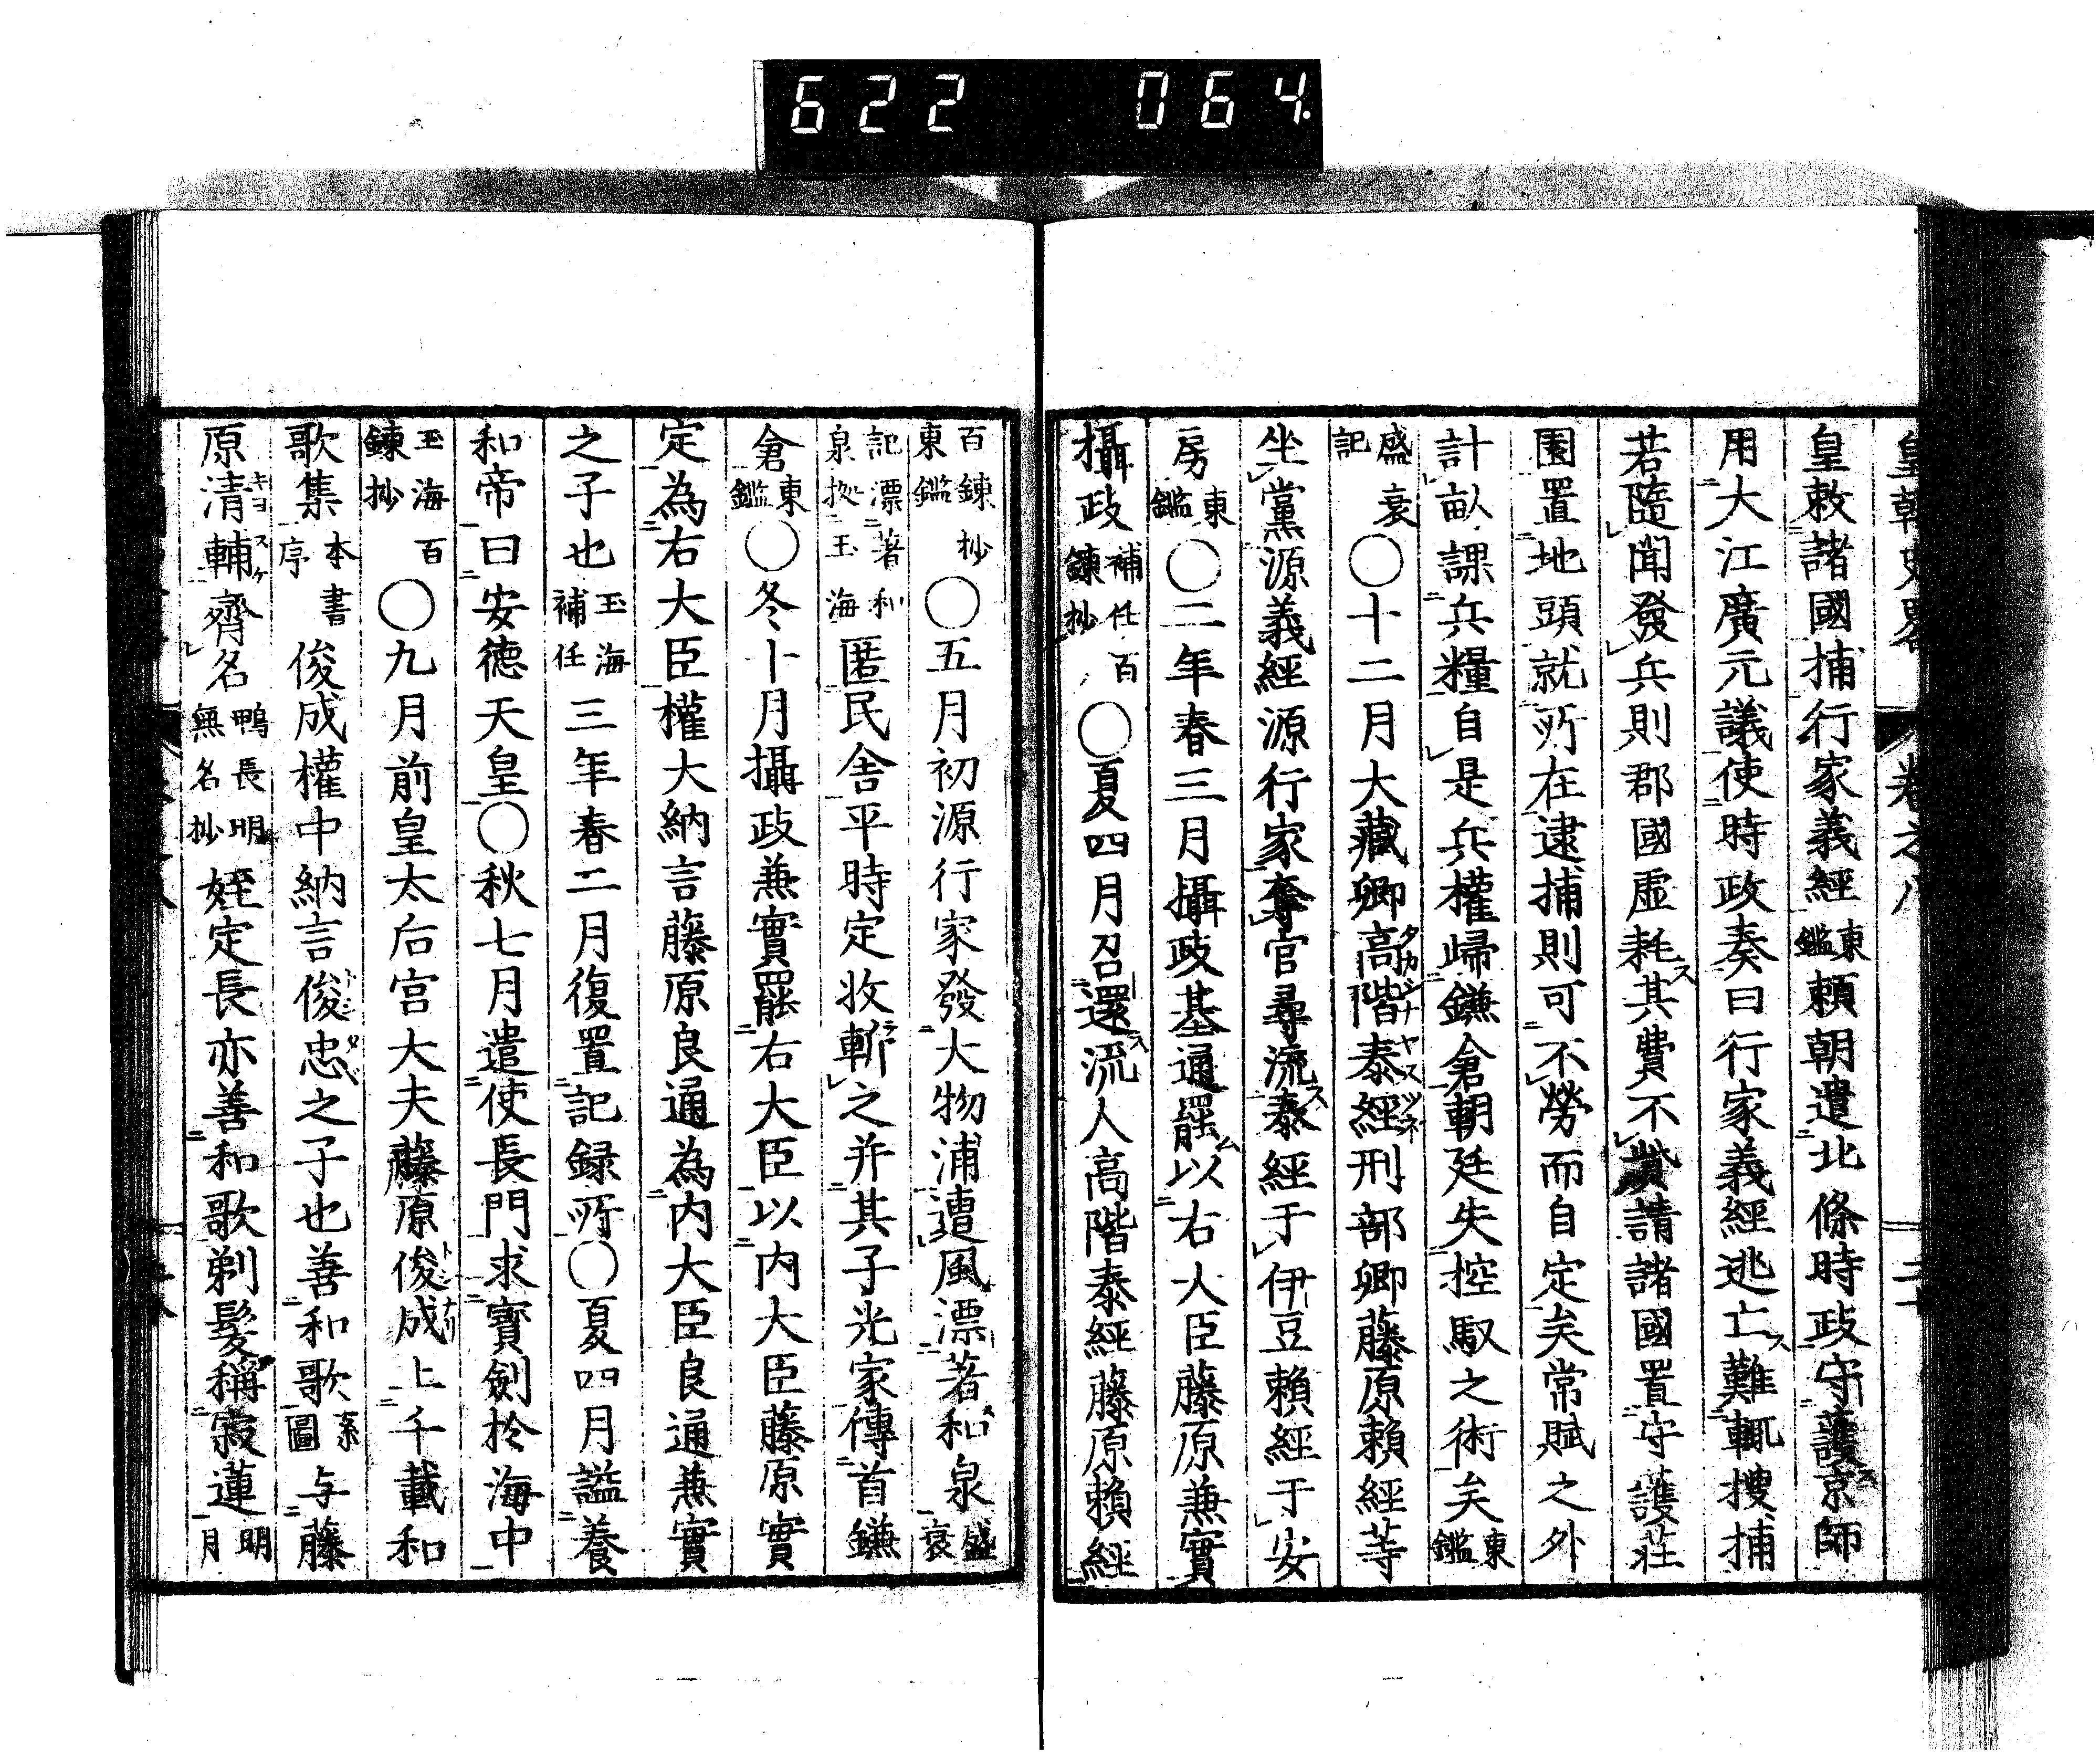 622 064
皇朝史略 卷之八 二十
皇敕諸國捕行家義經東鑑賴朝遣北條時政守護京師
用大江廣元議使時政奏曰行家義經逃亡難輒搜捕
若隨聞發兵則郡國虛耗其費不貲請諸國置守護莊
園置地頭就所在逮捕則可不勞而自定矣常賦之外
計畝課兵糧自是兵權歸鎌倉朝廷失控馭之術矣東鑑
盛衰記○十二月大藏卿高階泰經刑部卿藤原賴經等
坐黨源義經源行家奪官尋流泰經于伊豆賴經于安
房東鑑○二年春三月攝政基通罷以右大臣藤原兼實
攝政補任百鍊抄○夏四月召還流人高階泰經藤原賴經
百鍊抄東鑑○五月初源行家發大物浦遭風漂著和泉盛衰
記漂著和泉拠玉海匿民舍平時定收斬之并其子光家傳首鎌
倉東鑑○冬十月攝政兼實罷右大臣以內大臣藤原實
定為右大臣權大納言藤原良通為內大臣良通兼實
之子也玉海補任三年春二月復置記録所○夏四月謚養
和帝曰安德天皇○秋七月遣使長門求寶劍於海中
玉海百鍊抄○九月前皇太后宮大夫藤原俊成上千載和
歌集本書序俊成權中納言俊忠之子也善和歌系圖与藤
原清輔齊名鴨長明無名抄姪定長亦善和歌剃髮稱寂蓮明月